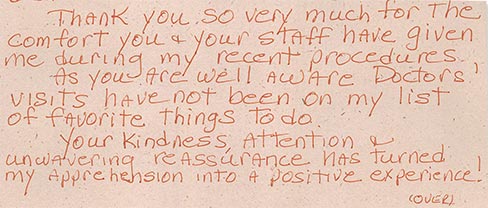 Thank you so very much for the
comfort you & your staff have given
me during my recent procedures.
As you are well aware Doctors'
visits have not been on my list
of favorite things to do.
Your kindness, attention &
unwavering reassurance has turned
my apprehension into a positive experience!
(OVER)